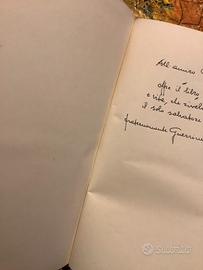 All'amico
offre il libro
e vita, che rivel
il solo salvatore
fraternamente Guerrino
Subito.it